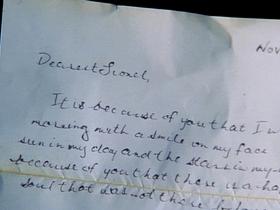 Nov
Dearest Lionel,
It is because of you that I
morning with a smile on my face
sun in my day and the stars in my
because of you that there is a
soul that was not there